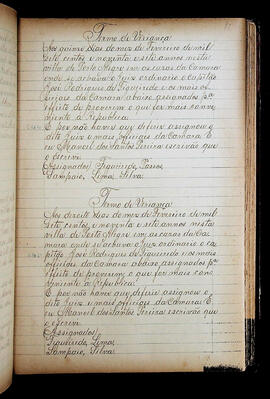 Termo de Veriança
Aos quinze dias do mez de Fevereiro de mil
sete centos e noventa e sete annos nesta
villa de Porto Alegre em as casas da Camara
onde se achava o Juiz ordinario o capitão
José Rodrigues de Figueiredo e os mais of-
ficiaes da Camara abaixo assignados pª
effeito de proverem o que for mais conve-
niente á Republica.
E por não haver que deferir assignou o
dito Juiz e mais officiaes da Camara. E
eu Manoel dos Santos Pereira escrivão que
o escrevi.
Assignados: Figueiredo,
Sampaio, Lima, Silva.
Termo de Veriança
Aos dezoito dias do mez de Fevereiro de mil
sete centos e noventa e sete annos nesta
villa de Porto Alegre em as casas da Ca-
mara onde se achava o Juiz ordinario o ca-
pitão José Rodrigues de Figueiredo e os mais
officiaes da Camara abaixo assignados pª
effeito de proverem o que for mais conve-
niente á Republica.
E por não haver que deferir assignou o
dito Juiz e mais officiaes da Camara. E
eu Manoel dos Santos Pereira escrivão que
o escrevi.
Assignados
Figueiredo, Lima,
Sampaio, Silva.